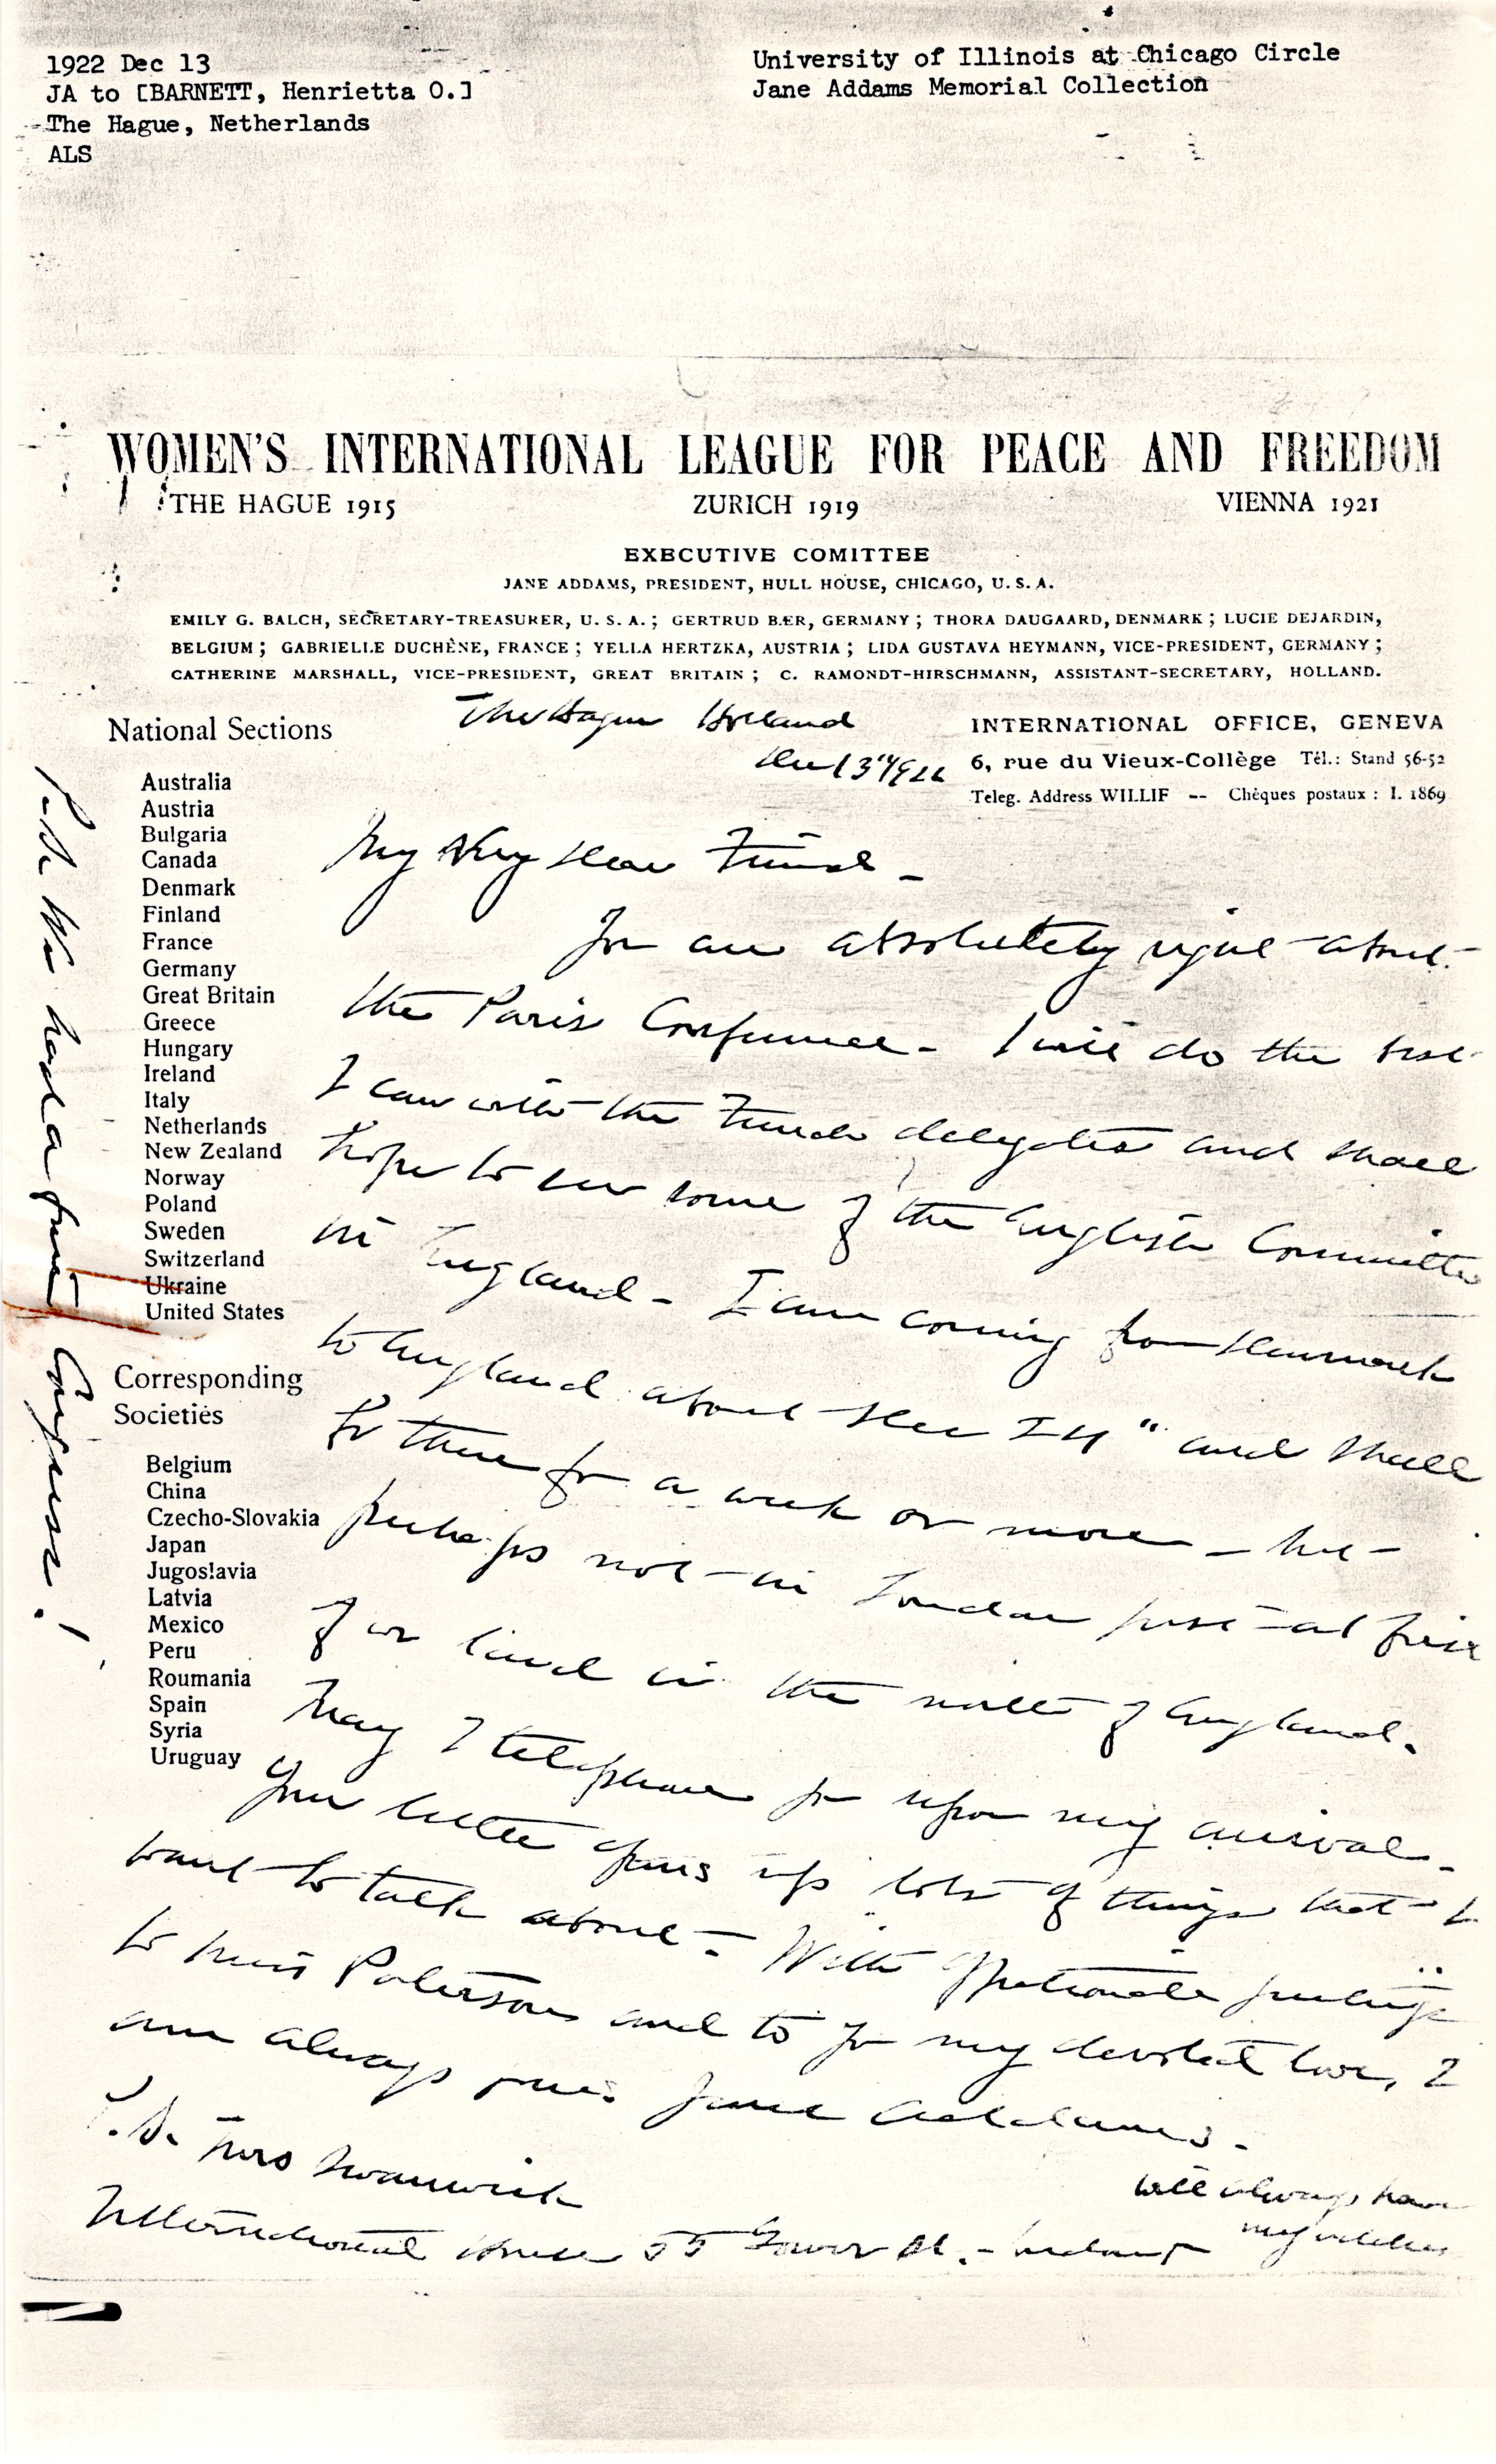 1922 Dec 13
JA to [BARNETT, Henrietta O.]
The Hague, Netherlands
ALS
University of Illinois at Chicago Circle
Jane Addams Memorial Collection
WOMEN'S INTERNATIONAL LEAGUE FOR PEACE AND FREEDOM
THE HAGUE 1915 ZURICH 1919 VIENNA 1921
EXECUTIVE COMITTEE
JANE ADDAMS, PRESIDENT, HULL HOUSE, CHICAGO, U.S.A.
EMILY G. BALCH, SECRETARY-TREASURER, U.S.A.; GERTRUD BÆR, GERMANY; THORA DAUGAARD, DENMARK; LUCIE DEJARDIN,
BELGIUM; GABRIELLE DUCHÊNE, FRANCE; YELLA HERTZKA, AUSTRIA; LIDA GUSTAVA HEYMANN, VICE-PRESIDENT, GERMANY;
CATHERINE MARSHALL, VICE-PRESIDENT, GREAT BRITAIN; C. RAMONDT-HIRSCHMANN, ASSISTANT-SECRETARY, HOLLAND.
INTERNATIONAL OFFICE, GENEVA
6, rue du Vieux-Collège Tél.: Stand 56-52
Teleg. Address WILLIF -- Chèques postaux : I. 1869
National Sections
Australia
Austria
Bulgaria
Canada
Denmark
Finland
France
Germany
Great Britain
Greece
Hungary
Ireland
Italy
Netherlands
New Zealand
Norway
Poland
Sweden
Switzerland
Ukraine
United States
Corresponding
Societies
Belgium
China
Czecho-Slovakia
Japan
Jugoslavia
Latvia
Mexico
Peru
Roumania
Spain
Syria
Uruguay
The Hague Holland
Dec 13" 1922
My Very dear Friend -
You are absolutely right about
the Paris Conference - I will do the best
I can with the French delegates and shall
hope to see some of the English Committee
in England - I am coming from Denmark
to England about Dec 24" and shall
be there for a week or more - but
perhaps not in London just at first
if we land in the north of England.
May I telephone you upon my arrival -
Your letter opens up lots of things that I
want to talk about - With affectionate greetings
to Miss Paterson and to you my devoted love, I
am always yours Jane Addams -
P.S. Mrs Swanwick
International House 55 Gower St. - London
will always have
my address
P.S. We had a fine Congress!